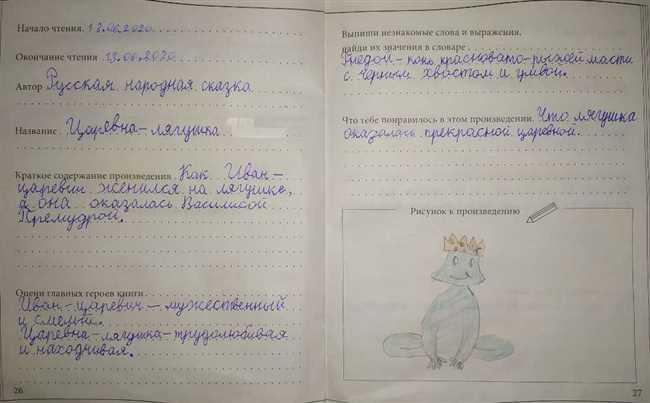 Начало чтения 12.06.2020
Окончание чтения 13.06.2020
Автор Русская народная сказка
Название Царевна-лягушка
Краткое содержание произведения Как Иван-
царевич женился на лягушке,
а она оказалась Василисой
Премудрой.
Оцени главных героев книги
Иван-царевич - мужественный
и смелый.
Царевна-лягушка - трудолюбивая
и находчивая.
26
Выпиши незнакомые слова и выражения,
найди их значения в словаре
Гнедой - конь красновато-рыжей масти
с чёрным хвостом и гривой.
Что тебе понравилось в этом произведении Что лягушка
оказалась прекрасной царевной.
Рисунок к произведению
27